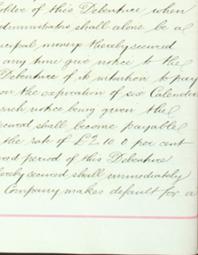 holder of this Debenture when
administrator shall alone be a
cipal money thereby secured
any time give notice to the
Debenture of its intention to pay
on the expiration of six Calendar
such notice being given the
secured shall become payable
the rate of £2.10.0 per cent
said period of this Debenture
hereby secured shall immediately
Company makes default for a